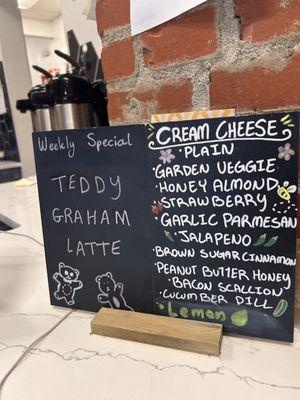 Weekly Special
TEDDY
GRAHAM
LATTE
CREAM CHEESE
· PLAIN
· GARDEN VEGGIE
· HONEY ALMOND
· STRAWBERRY
· GARLIC PARMESAN
· JALAPENO
· BROWN SUGAR CINNAMON
· PEANUT BUTTER HONEY
· BACON SCALLION
· CUCUMBER DILL
· Lemon